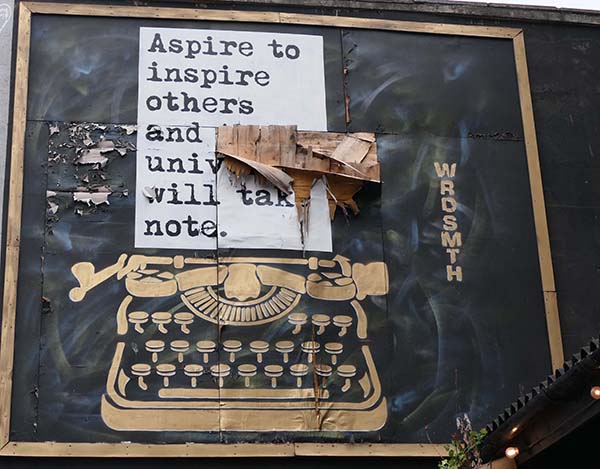 Aspire to
inspire
others
and
univ
will tak
note.
WRDSMTH